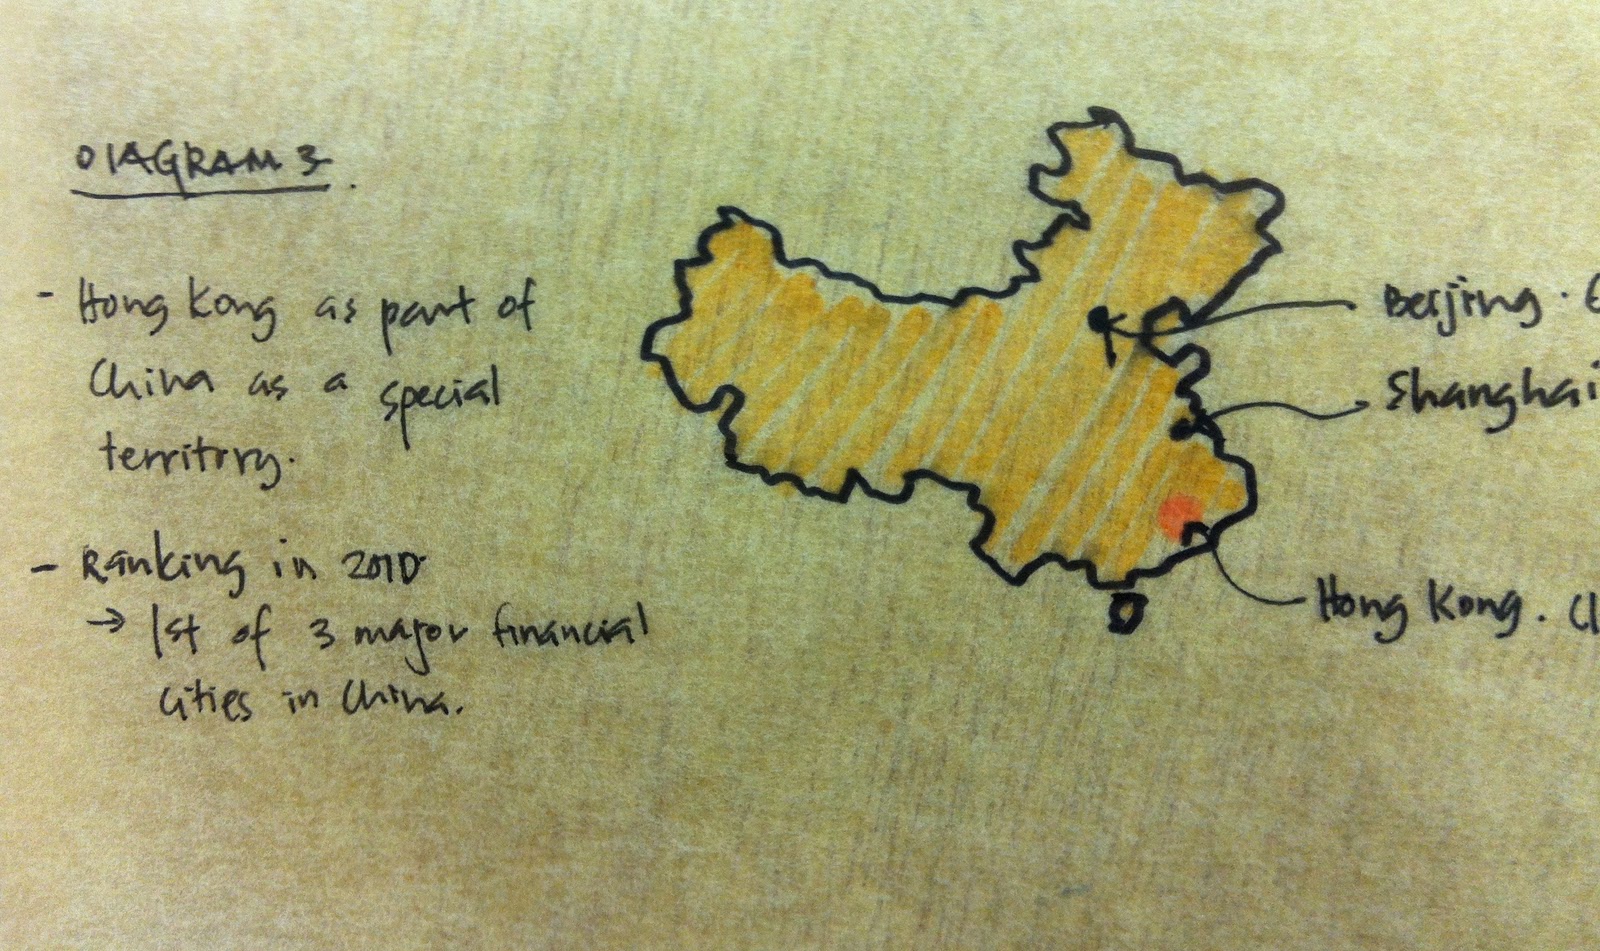 DIAGRAM 3.
- Hong Kong as part of
China as a special
territory.
- Ranking in 2010
→ 1st of 3 major financial
cities in China.
Beijing.
Shanghai
Hong Kong.